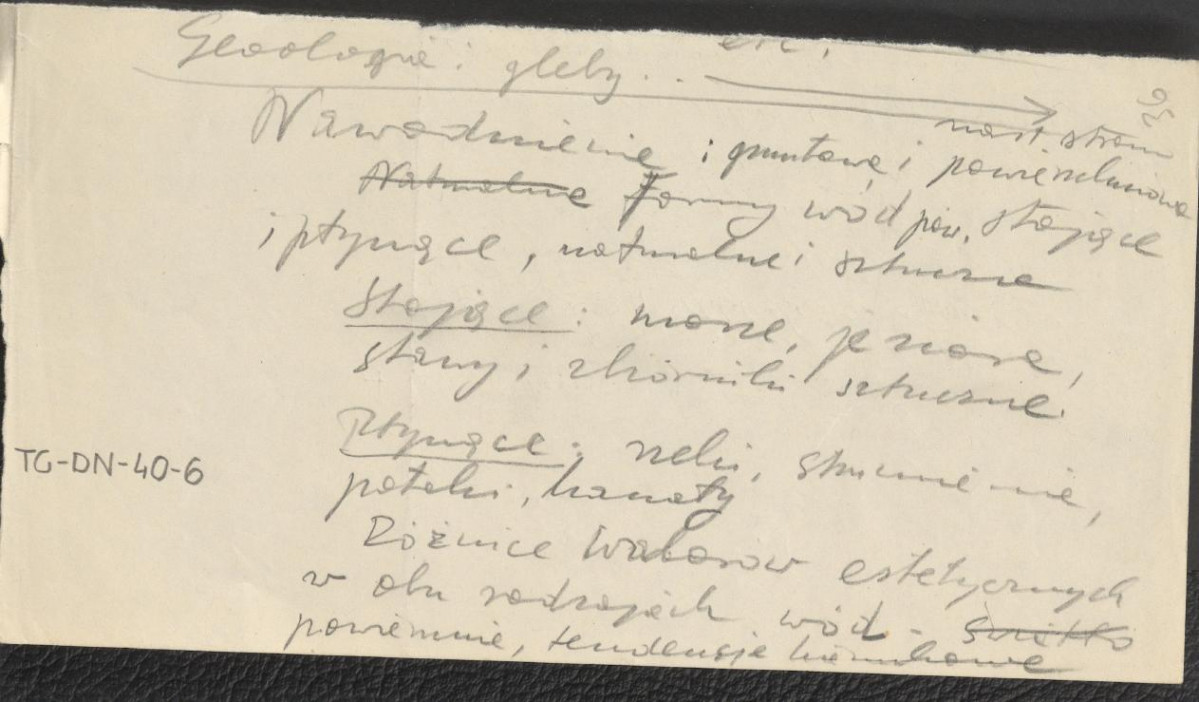 etc.
Geologia i gleby . .
nast. stron
95
Nawodnienie i gruntowe i powierzchniowe
Naturalne Formy wód pow. stojące
i płynące, naturalne i sztuczne
Stojące: morze, jeziora,
stawy i zbiorniki sztuczne.
Płynące: rzeki, strumienie,
potoki, kanały
Różnice walorów estetycznych
w obu rodzajach wód - światło
TG-DN-40-6
powierznie, tendencje kierunkowe